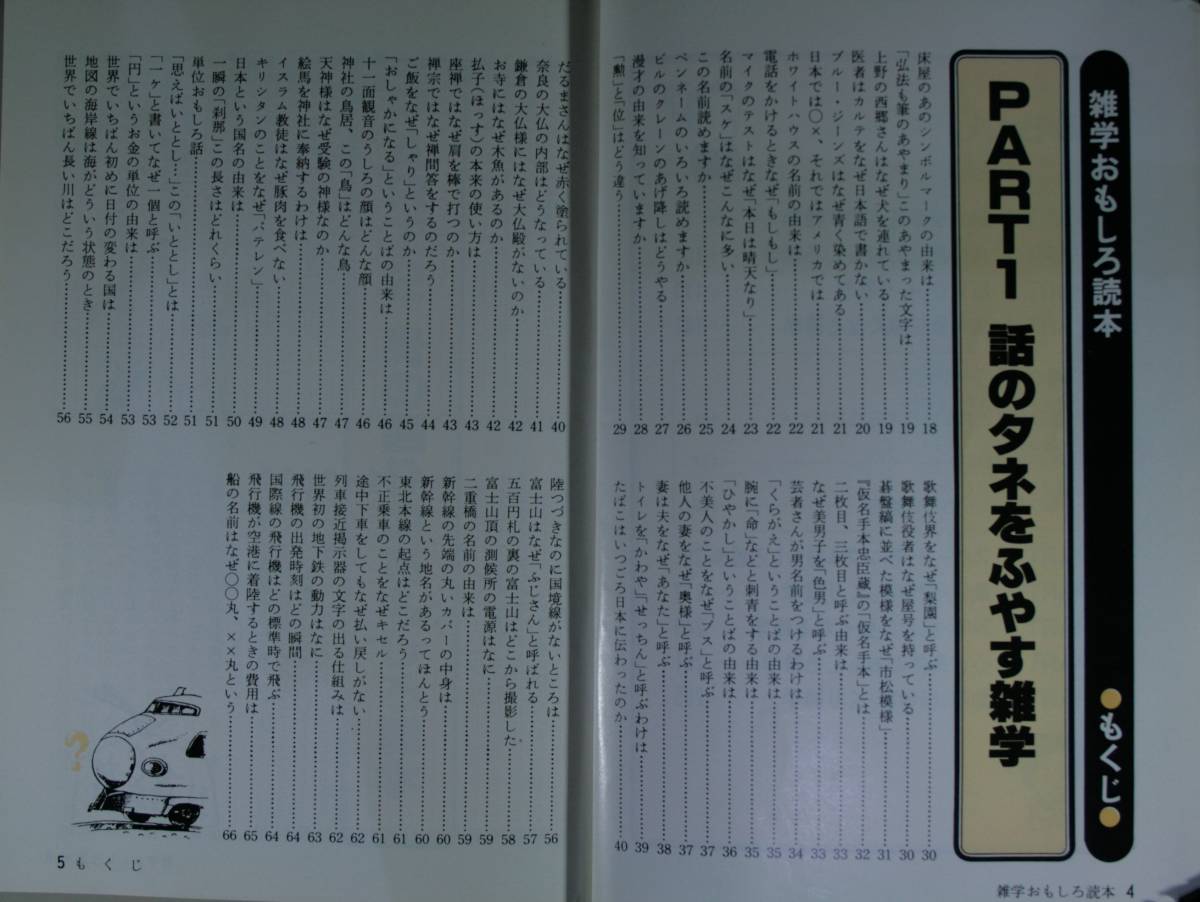 雑学おもしろ読本 ●もくじ●
PART1 話のタネをふやす雑学
床屋のあのシンボルマークの由来は 18
「弘法も筆のあやまり」このあやまった文字は 19
上野の西郷さんはなぜ犬を連れている 19
医者はカルテをなぜ日本語で書かない 20
ブルー・ジーンズはなぜ青く染めてある 21
日本では〇×、それではアメリカでは 21
ホワイトハウスの名前の由来は 22
電話をかけるときなぜ「もしもし」 22
マイクのテストはなぜ「本日は晴天なり」 23
名前の「スケ」はなぜこんなに多い 24
この名前読めますか 25
ペンネームのいろいろ読めますか 26
ビルのクレーンのあげ降しはどうやる 27
漫才の由来を知っていますか 28
「勲」と「位」はどう違う 29
歌舞伎界をなぜ「梨園」と呼ぶ 30
歌舞伎役者はなぜ屋号を持っている 30
碁盤縞に並べた模様をなぜ「市松模様」 31
『仮名手本忠臣蔵』の「仮名手本」とは 32
二枚目、三枚目と呼ぶ由来は 33
なぜ美男子を「色男」と呼ぶ 33
芸者さんが男名前をつけるわけは 34
「くらがえ」ということばの由来は 35
腕に「命」などと刺青をする由来は 35
「ひやかし」ということばの由来は 36
不美人のことをなぜ「ブス」と呼ぶ 37
他人の妻をなぜ「奥様」と呼ぶ 37
妻は夫をなぜ「あなた」と呼ぶ 38
トイレを「かわや」「せっちん」と呼ぶわけは 39
たばこはいつごろ日本に伝わったのか 40
雑学おもしろ読本 4
だるまさんはなぜ赤く塗られている 40
奈良の大仏の内部はどうなっている 41
鎌倉の大仏様にはなぜ大仏殿がないのか 42
お寺にはなぜ木魚があるのか 42
払子(ほっす)の本来の使い方は 43
座禅ではなぜ肩を棒で打つのか 43
禅宗ではなぜ禅問答をするのだろう 44
ご飯をなぜ「しゃり」というのか 45
「おしゃかになる」ということばの由来は 46
十一面観音のうしろの顔はどんな顔 46
神社の鳥居、この「鳥」はどんな鳥 47
天神様はなぜ受験の神様なのか 47
絵馬を神社に奉納するわけは 48
イスラム教徒はなぜ豚肉を食べない 48
キリシタンのことをなぜ「バテレン」 49
日本という国名の由来は 50
一瞬の「刹那」この長さはどれくらい 51
単位おもしろ話 51
「思えばいととし…」この「いととし」とは 52
「一ヶ」と書いてなぜ一個と呼ぶ 53
「円」というお金の単位の由来は 53
世界でいちばん初めに日付の変わる国は 54
地図の海岸線は海がどういう状態のとき 55
世界でいちばん長い川はどこだろう 56
陸つづきなのに国境線がないところは 56
富士山はなぜ「ふじさん」と呼ばれる 57
五百円札の裏の富士山はどこから撮影した 58
富士山頂の測候所の電源はなに 59
二重橋の名前の由来は 59
新幹線の先端の丸いカバーの中身は 60
新幹線という地名があるってほんとう 60
東北本線の起点はどこだろう 61
不正乗車のことをなぜキセル 61
途中下車をしてもなぜ払い戻しがない 62
列車接近掲示器の文字の出る仕組みは 62
世界初の地下鉄の動力はなに 63
飛行機の出発時刻はどの瞬間 64
国際線の飛行機はどの標準時で飛ぶ 64
飛行機が空港に着陸するときの費用は 65
船の名前はなぜ〇〇丸、××丸という 66
?
5 もくじ